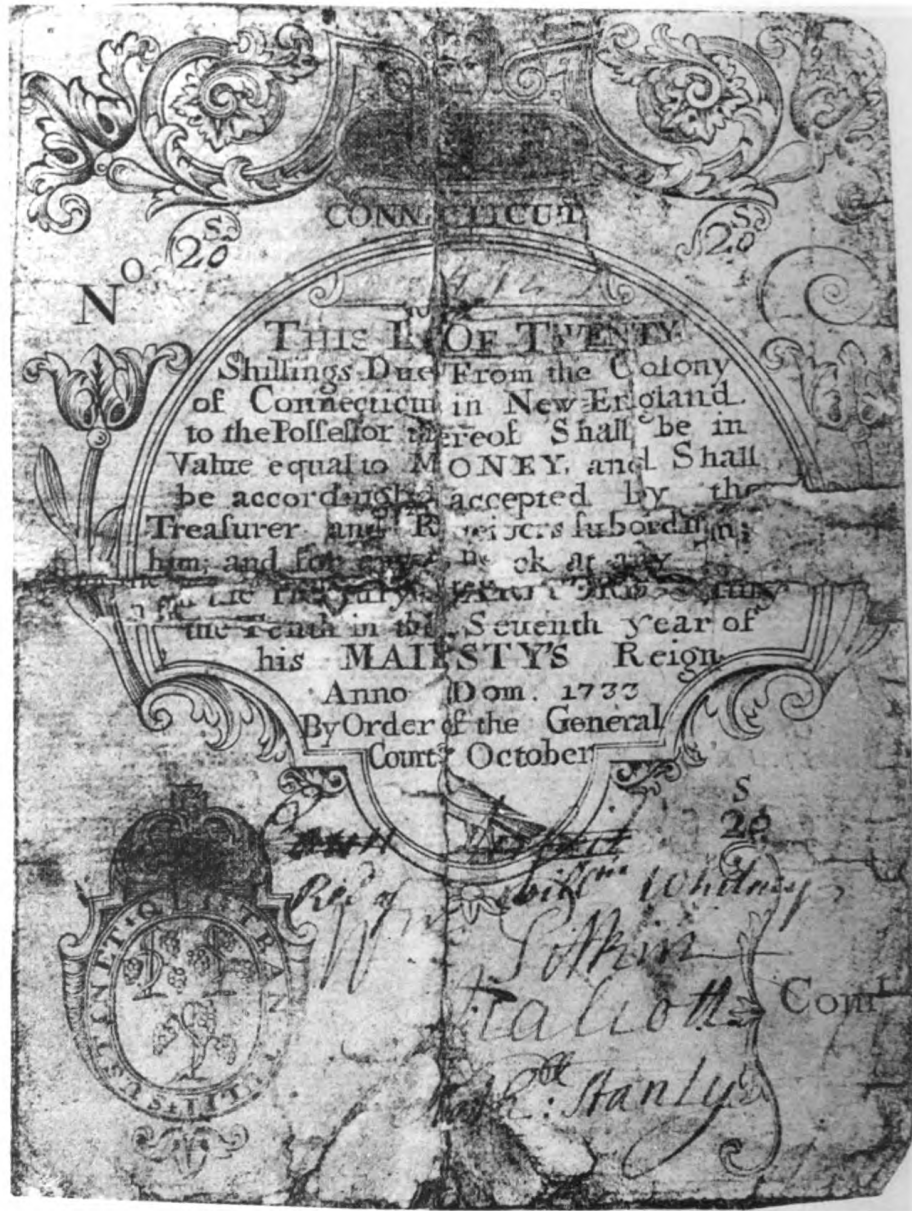 CONNECTICUT
20 S
20 S
No
THIS OF TWENTY
Shillings Due From the Colony
of Connecticut in New England
to the Poſſeſſor thereof Shall be in
Value equal to MONEY, and Shall
be accordingly accepted by the
Treaſurer and ſubordin
him; and for ck at any
the
the Tenth in the Seuenth year of
his MAIESTY'S Reign
Anno Dom. 1733
By Order of the General
Court October
S
20
Whitney
Pitkin
Talcott
Comtt
Stanly
SUSTINET QUI TRAN TULIT